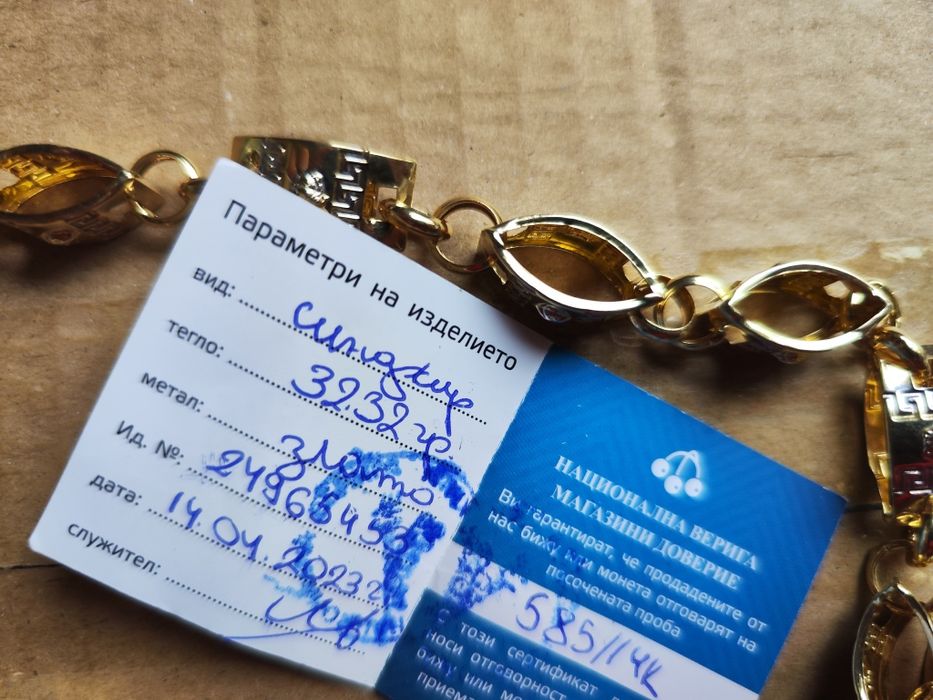 Параметри на изделието
вид: синджир
тегло: 32.32 гр.
метал: злато
Ид. №: 24966456
дата: 14.04.2023 г
служител:
НАЦИОНАЛНА ВЕРИГА
МАГАЗИНИ ДОВЕРИЕ
Ви гарантират, че продадените от
нас бижу или монета отговарят на
посочената проба
585/14К
С този сертификат
носи отговорност
бижу или